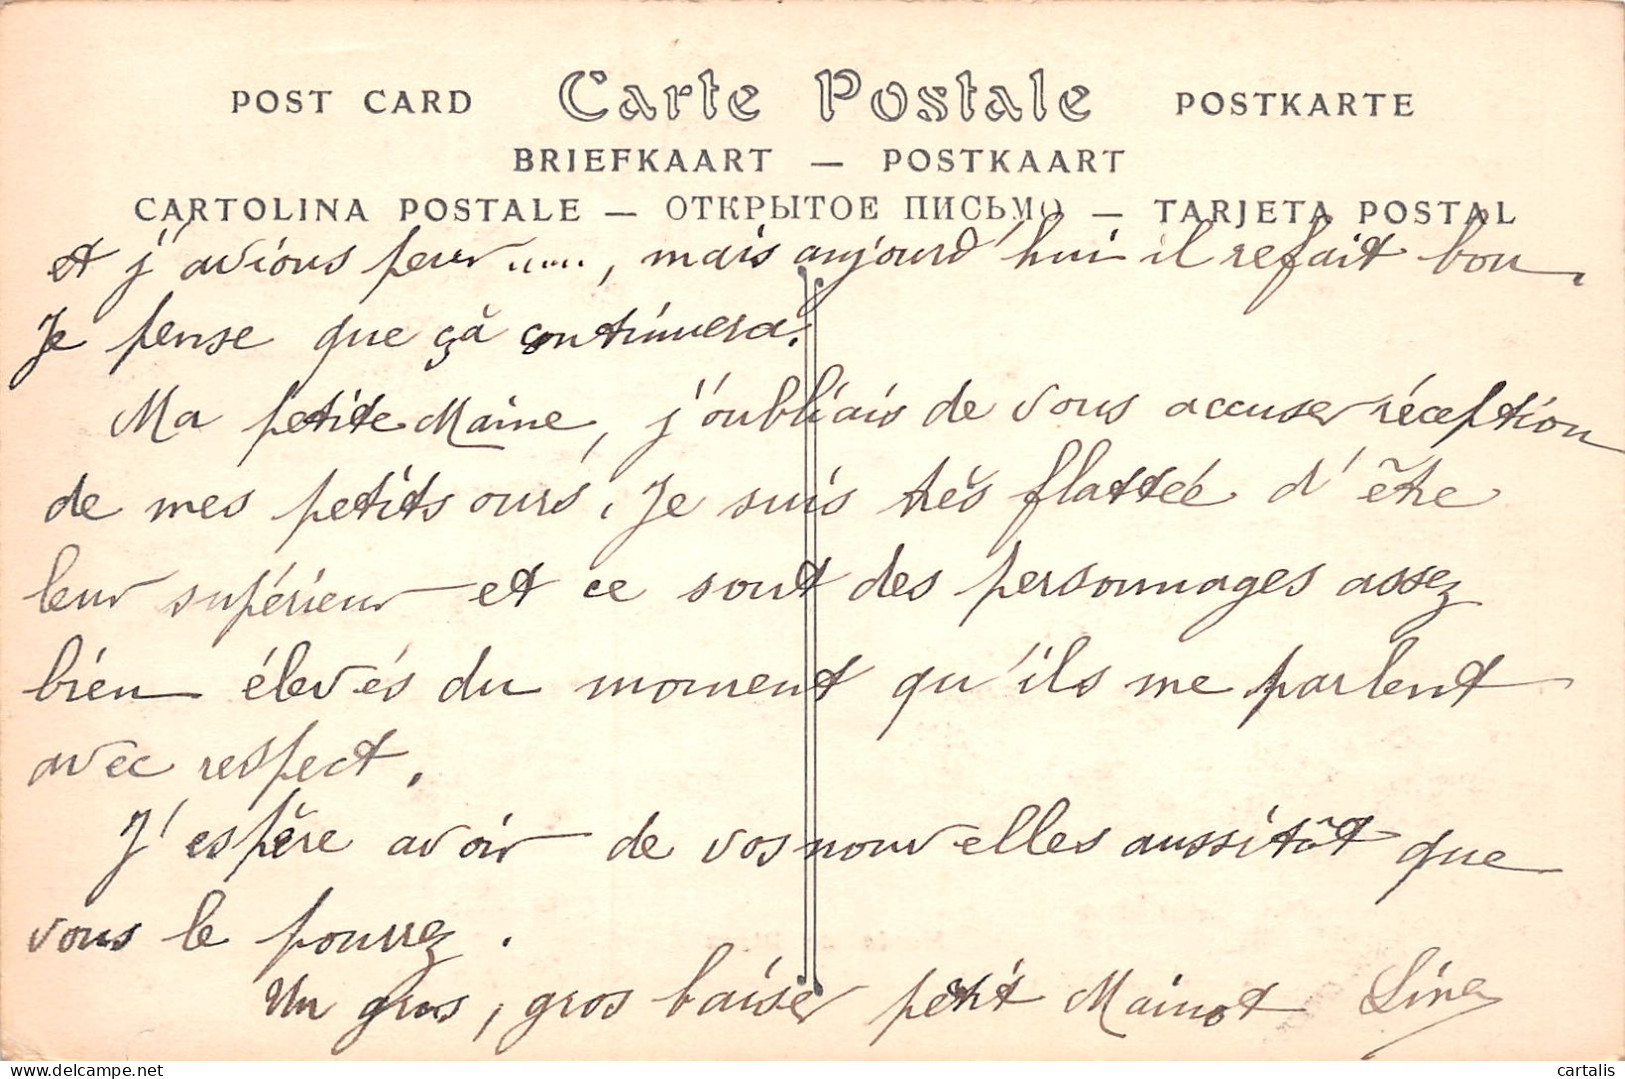 POST CARD Carte Postale POSTKARTE
BRIEFKAART — POSTKAART
CARTOLINA POSTALE — ОТКРЫТОЕ ПИСЬМО — TARJETA POSTAL
et j'avions peur ....., mais aujourd'hui il refait bon.
Je pense que çà continuera.
Ma petite Maine, j'oubliais de vous accuser réception
de mes petits ours. Je suis très flattée d'être
leur supérieur et ce sont des personnages assez
bien élevés du moment qu'ils me parlent
avec respect.
J'espère avoir de vos nouvelles aussitôt que
vous le pourrez.
Un gros, gros baiser petit Mainot Line
delcampe.net
cartalis